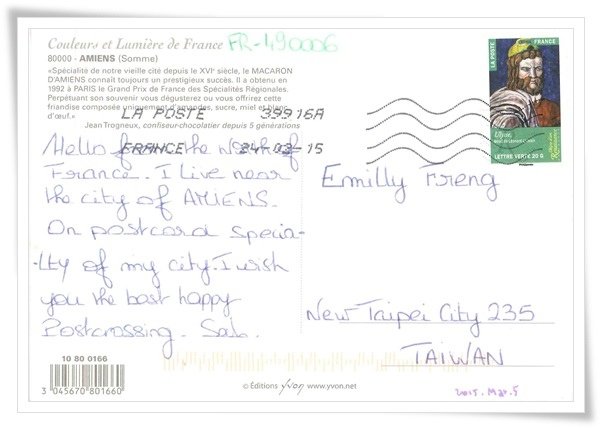 Couleurs et Lumière de France FR-490006
80000 - AMIENS (Somme)
«Spécialité de notre vieille cité depuis le XVIᵉ siècle, le MACARON
D'AMIENS connaît toujours un prestigieux succès. Il a obtenu en
1992 à PARIS le Grand Prix de France des Spécialités Régionales.
Perpétuant son souvenir vous dégusterez ou vous offrirez cette
friandise composée uniquement d'amandes, sucre, miel et blanc
d'œuf.»
Jean Trogneux, confiseur-chocolatier depuis 5 générations
LA POSTE 39916A
FRANCE 24-02-15
LA POSTE FRANCE
Ulysse,
LETTRE VERTE 20 G
Hello from the North of
France. I live near
the city of AMIENS.
On postcard specia-
-lty of my city. I wish
you the best happy
Postcrossing.
Emilly Freng
New Taipei City 235
TAIWAN
10 80 0166
3 045670 801660
© Editions yvon www.yvon.net
2015. Mar. 5